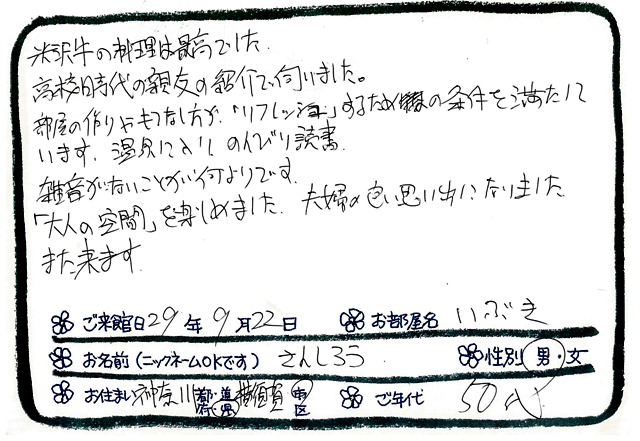 米沢牛の料理は最高でした.
高校時代の親友の紹介で伺いました。
部屋の作りやもてなし方が、「リフレッシュ」するための条件を満たして
います. 温泉に入り のんびり読書.
雑音がないことが何よりです.
「大人の空間」を楽しめました. 夫婦の良い思い出になりました.
また来ます.
ご来館日 29 年 9 月 22 日 お部屋名 いぶき
お名前(ニックネームOKです) さんしろう 性別 男・女
お住まい 神奈川 都・道 府・県 横須賀 市 区 ご年代 50代